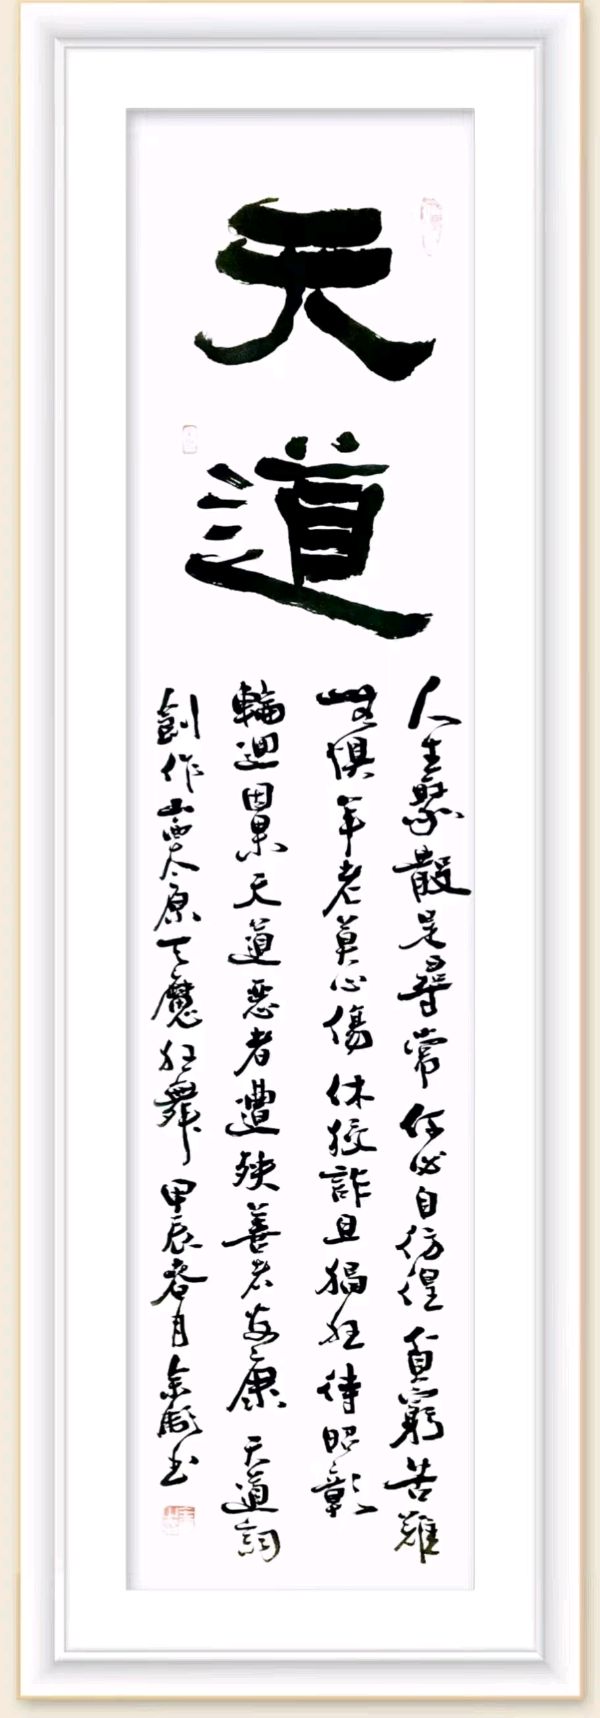 天道
人生聚散是尋常何必自彷徨貧窮苦難
無懼年老莫心傷休狡詐且猖狂待昭彰
輪迴因果天道惡者遭殃善者安康天道詞
創作山西太原天魔狂舞甲辰春月余彪书